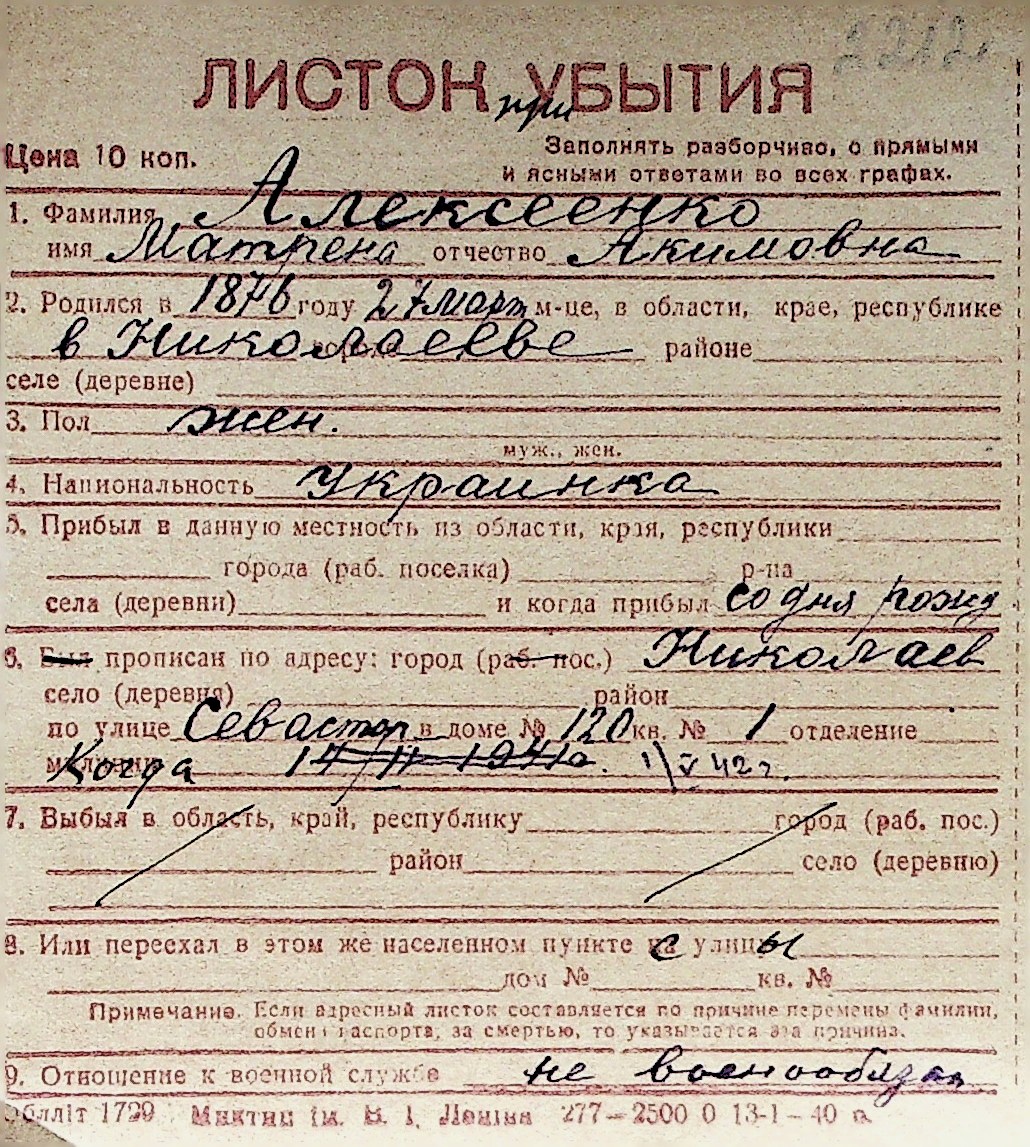 2212
ЛИСТОК УБЫТИЯ
при
Цена 10 коп.
Заполнять разборчиво, с прямыми
и ясными ответами во всех графах.
1. Фамилия Алексеенко
имя Матрена отчество Акимовна
2. Родился в 1876 году 27 март м-це, в области, крае, республике
в Николаеве районе
селе (деревне)
3. Пол жен.
муж., жен.
4. Национальность Украинка
5. Прибыл в данную местность из области, края, республики
города (раб. поселка) р-на
села (деревни) и когда прибыл со дня рожд
6. Был прописан по адресу: город (раб. пос.) Николаев
село (деревня) район
по улице Севастоп в доме № 120 кв. № 1 отделение
Когда 14/II-1941г. 1/V 42г.
7. Выбыл в область, край, республику город (раб. пос.)
район село (деревню)
8. Или переехал в этом же населенном пункте с улицы
дом № кв. №
Примечание. Если адресный листок составляется по причине перемены фамилии,
обмена паспорта, за смертью, то указывается эта причина.
9. Отношение к военной службе не военнообязан
Обліт 1729 Миктип ім. В. І. Леніна 277—2500 0 13-1-40 р.